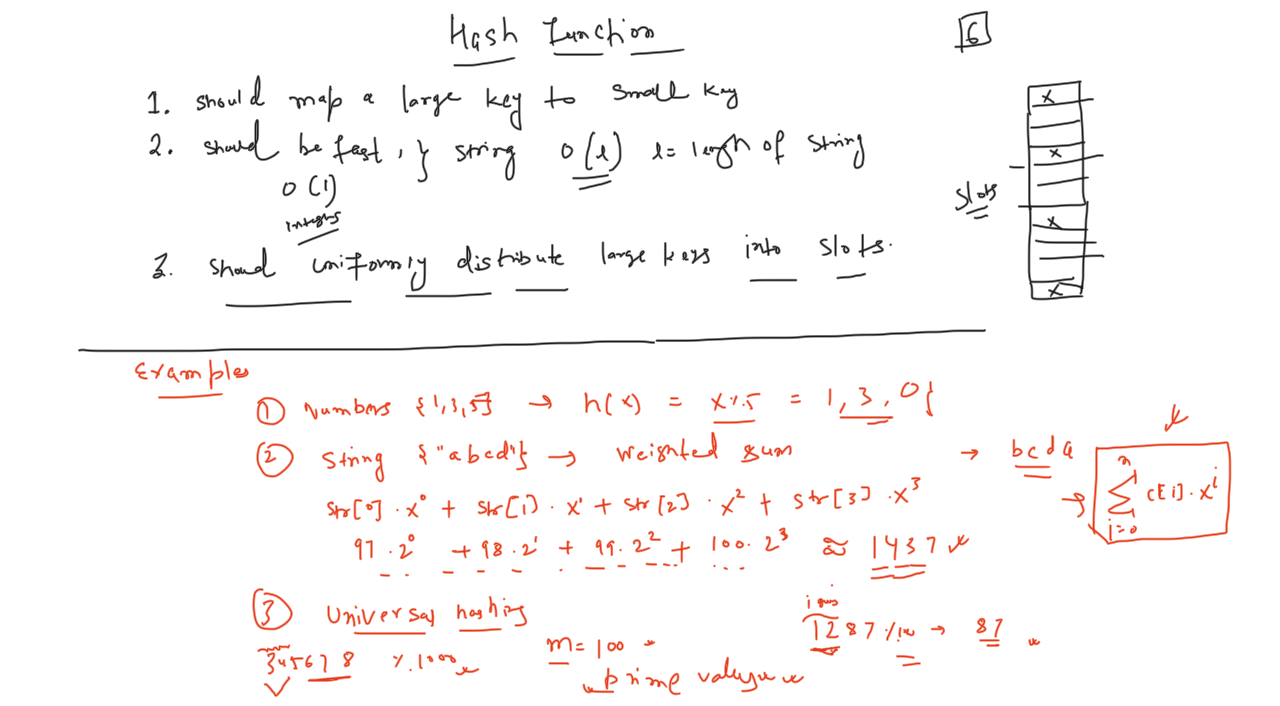 Hash Function
6
1. Should map a large key to small key
2. Should be fast, } string O(l) l = length of string
O(1)
integers
slots
3. Should uniformly distribute large keys into slots.
Examples
① Numbers {1,3,5} → h(x) = x%5 = 1, 3, 0}
② String {"abcd"} → weighted sum → bcda
str[0]·x⁰ + str[1]·x¹ + str[2]·x² + str[3]·x³
→ ∑ⁿᵢ₌₀ c[i]·xⁱ
97·2⁰ + 98·2¹ + 99·2² + 100·2³ ≈ 1437
③ Universal hashing
1287 %100 → 87
345678 %1000
m = 100
prime value